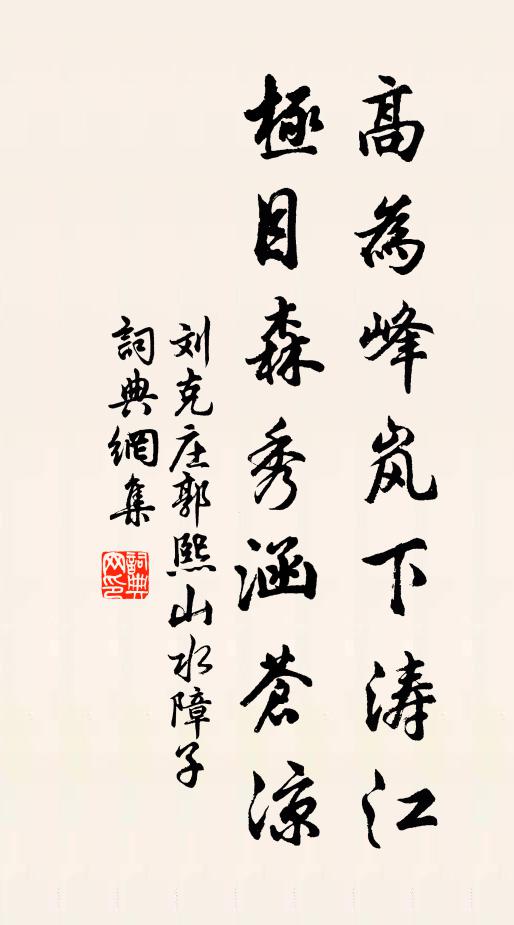 高為峰岚下涛江
極目森秀涵蒼涼
刘克庄郭熙山水障子
詞典網集
詞典网印